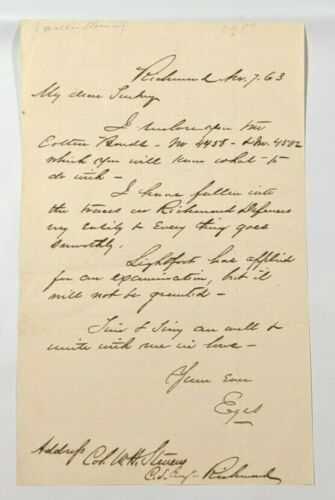 Richmond Nov. 7. 63
My dear
I enclose you two
Cotton Bonds - No 4458 - & No. 4502
which you will know what to
do with -
I have fallen into
the traces in Richmond Defences
very easily & Every thing goes
smoothly.
Lightfoot has applied
for an examination, but it
will not be granted -
& are well &
unite with me in love -
Yours Ever
Address Col. W. H. Stevens
C. S. Eng Richmond